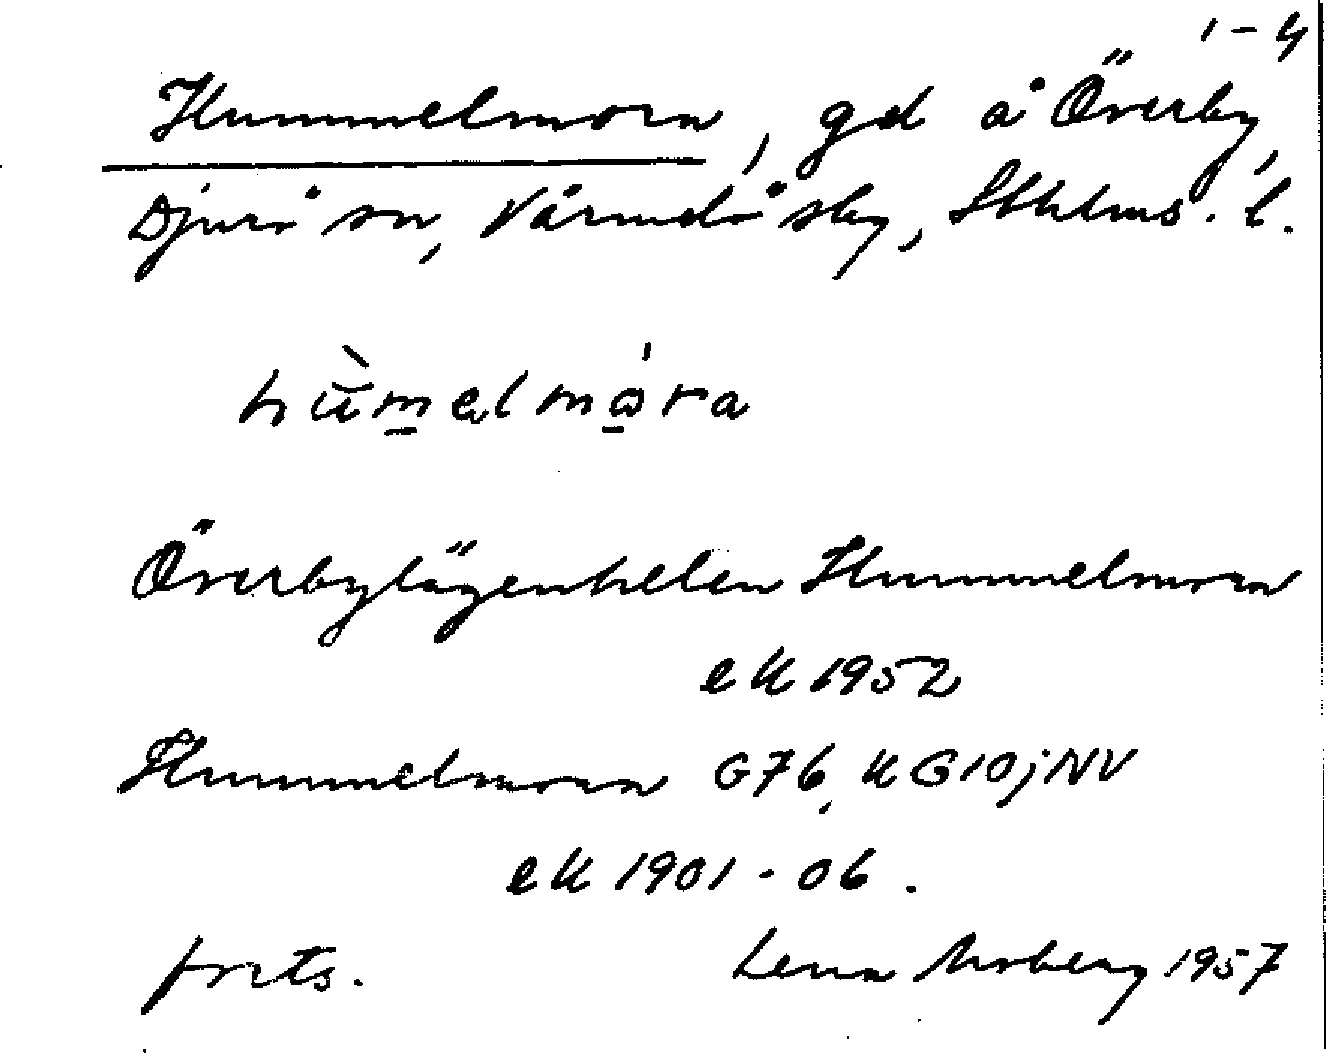 1-4
Hummelmora, gd å Överby,
Djurö sn, Värmdö sky, Sthlms. l.
hùməlmóra
Överbylägenheten Hummelmora
ek 1952
Hummelmora G76, KG10jNV
ek 1901-06.
forts. Lena Moberg 1957